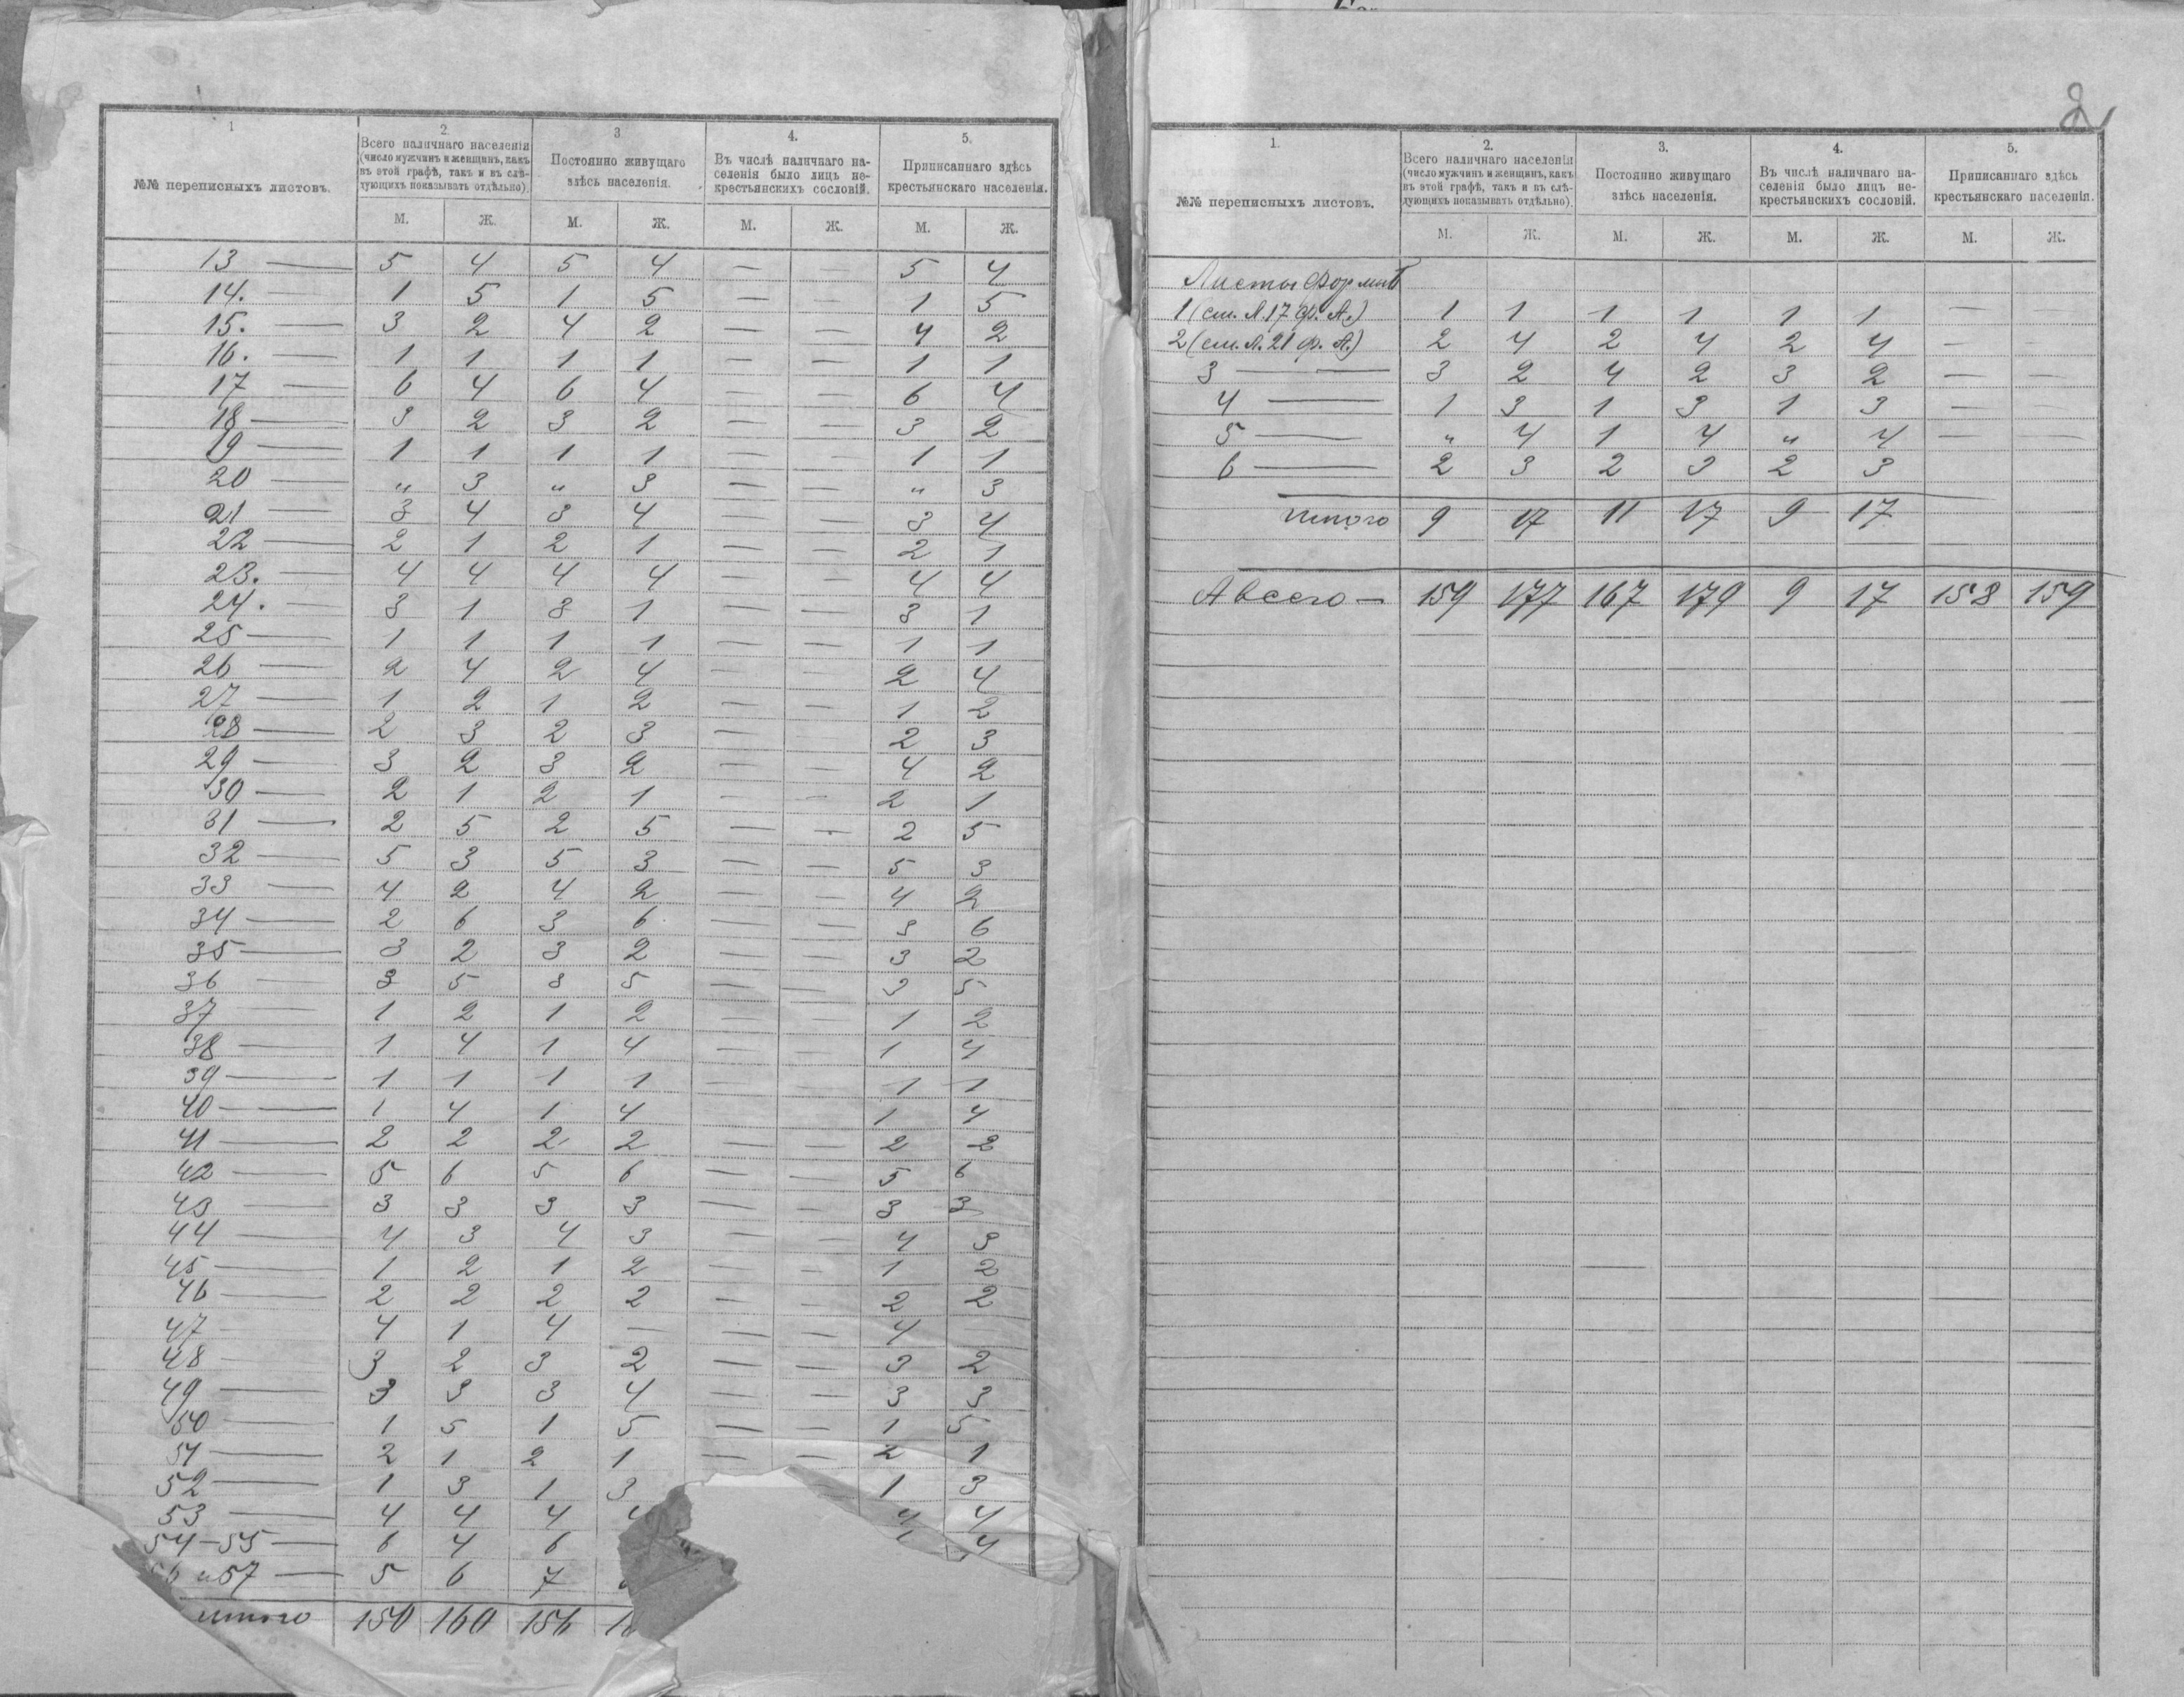 1
2.
3
4.
5.
№№ переписныхъ листовъ.
Всего наличнаго населенія (число мужчинъ и женщинъ, какъ въ этой графѣ, такъ и въ слѣдующихъ показывать отдѣльно).
Постоянно живущаго здѣсь населенія.
Въ числѣ наличнаго населенія было лицъ не-крестьянскихъ сословій.
Приписаннаго здѣсь крестьянскаго населенія.
М. Ж. М. Ж. М. Ж. М. Ж.
13 — 5 4 5 4 — — 5 4
14. — 1 5 1 5 — — 1 5
15. — 3 2 4 2 — — 4 2
16. — 1 1 1 1 — — 1 1
17 — 6 4 6 4 — — 6 4
18 — 3 2 3 2 — — 3 2
19 — 1 1 1 1 — — 1 1
20 — „ 3 „ 3 — — „ 3
21 — 3 4 3 4 — — 3 4
22 — 2 1 2 1 — — 2 1
23. — 4 4 4 4 — — 4 4
24. — 3 1 3 1 — — 3 1
25 — 1 1 1 1 — — 1 1
26 — 2 4 2 4 — — 2 4
27 — 1 2 1 2 — — 1 2
28 — 2 3 2 3 — — 2 3
29 — 3 2 3 2 — — 4 2
30 — 2 1 2 1 — — 2 1
31 — 2 5 2 5 — — 2 5
32 — 5 3 5 3 — — 5 3
33 — 4 2 4 2 — — 4 2
34 — 2 6 3 6 — — 3 6
35 — 3 2 3 2 — — 3 2
36 — 3 5 3 5 — — 3 5
37 — 1 2 1 2 — — 1 2
38 — 1 4 1 4 — — 1 4
39 — 1 1 1 1 — — 1 1
40 — 1 4 1 4 — — 1 4
41 — 2 2 2 2 — — 2 2
42 — 5 6 5 6 — — 5 6
43 — 3 3 3 3 — — 3 3
44 — 4 3 4 3 — — 4 3
45 — 1 2 1 2 — — 1 2
46 — 2 2 2 2 — — 2 2
47 — 4 1 4 — — — 4 —
48 — 3 2 3 2 — — 3 2
49 — 3 3 3 4 — — 3 3
50 — 1 5 1 5 — — 1 5
51 — 2 1 2 1 — — 2 1
52 — 1 3 1 3 1 3
53 — 4 4 4 4 4
54-55 — 6 4 6 4
и 57 — 5 6 7
итого 150 160 156
2
1.
2.
3.
4.
5.
№№ переписныхъ листовъ.
Всего наличнаго населенія (число мужчинъ и женщинъ, какъ въ этой графѣ, такъ и въ слѣдующихъ показывать отдѣльно).
Постоянно живущаго здѣсь населенія.
Въ числѣ наличнаго населенія было лицъ не-крестьянскихъ сословій.
Приписаннаго здѣсь крестьянскаго населенія.
М. Ж. М. Ж. М. Ж. М. Ж.
Листы формы Б
1 (см. л. 17 ф. А.) 1 1 1 1 1 1 —
2 (см. л. 21 ф. А.) 2 4 2 4 2 4 —
3 — 3 2 4 2 3 2 — —
4 — 1 3 1 3 1 3 — —
5 — „ 4 1 4 „ 4 — —
6 — 2 3 2 3 2 3
итого 9 17 11 17 9 17
А всего — 159 177 167 179 9 17 158 159